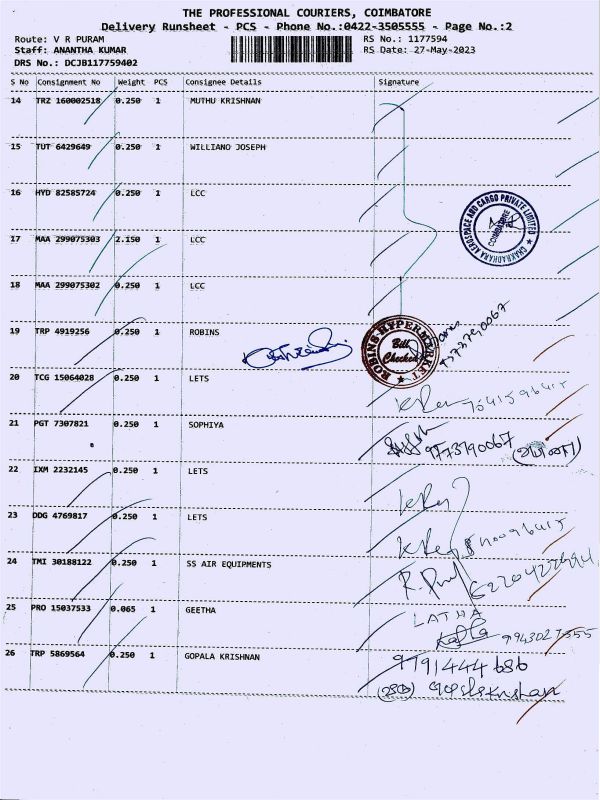 THE PROFESSIONAL COURIERS, COIMBATORE
Delivery Runsheet - PCS - Phone No.:0422-3505555 - Page No.:2
Route: V R PURAM RS No.: 1177594
Staff: ANANTHA KUMAR RS Date: 27-May-2023
DRS No.: DCJB117759402
S No Consignment No Weight PCS Consignee Details Signature
14 TRZ 160002518 0.250 1 MUTHU KRISHNAN
15 TUT 6429649 0.250 1 WILLIANO JOSEPH
16 HYD 82585724 0.250 1 LCC
CHAKRADHARA AEROSPACE AND CARGO PRIVATE LIMITED
COIMBATORE
17 MAA 299075303 2.150 1 LCC
18 MAA 299075302 0.250 1 LCC
19 TRP 4919256 0.250 1 ROBINS
ROBINS HYPERMARKET
Bill
Checked
20 TCG 15064028 0.250 1 LETS
21 PGT 7307821 0.250 1 SOPHIYA
9773790067
22 IXM 2232145 0.250 1 LETS
23 DDG 4769817 0.250 1 LETS
24 TMI 30188122 0.250 1 SS AIR EQUIPMENTS
25 PRO 15037533 0.065 1 GEETHA
LATHA
26 TRP 5869564 0.250 1 GOPALA KRISHNAN
9791444686